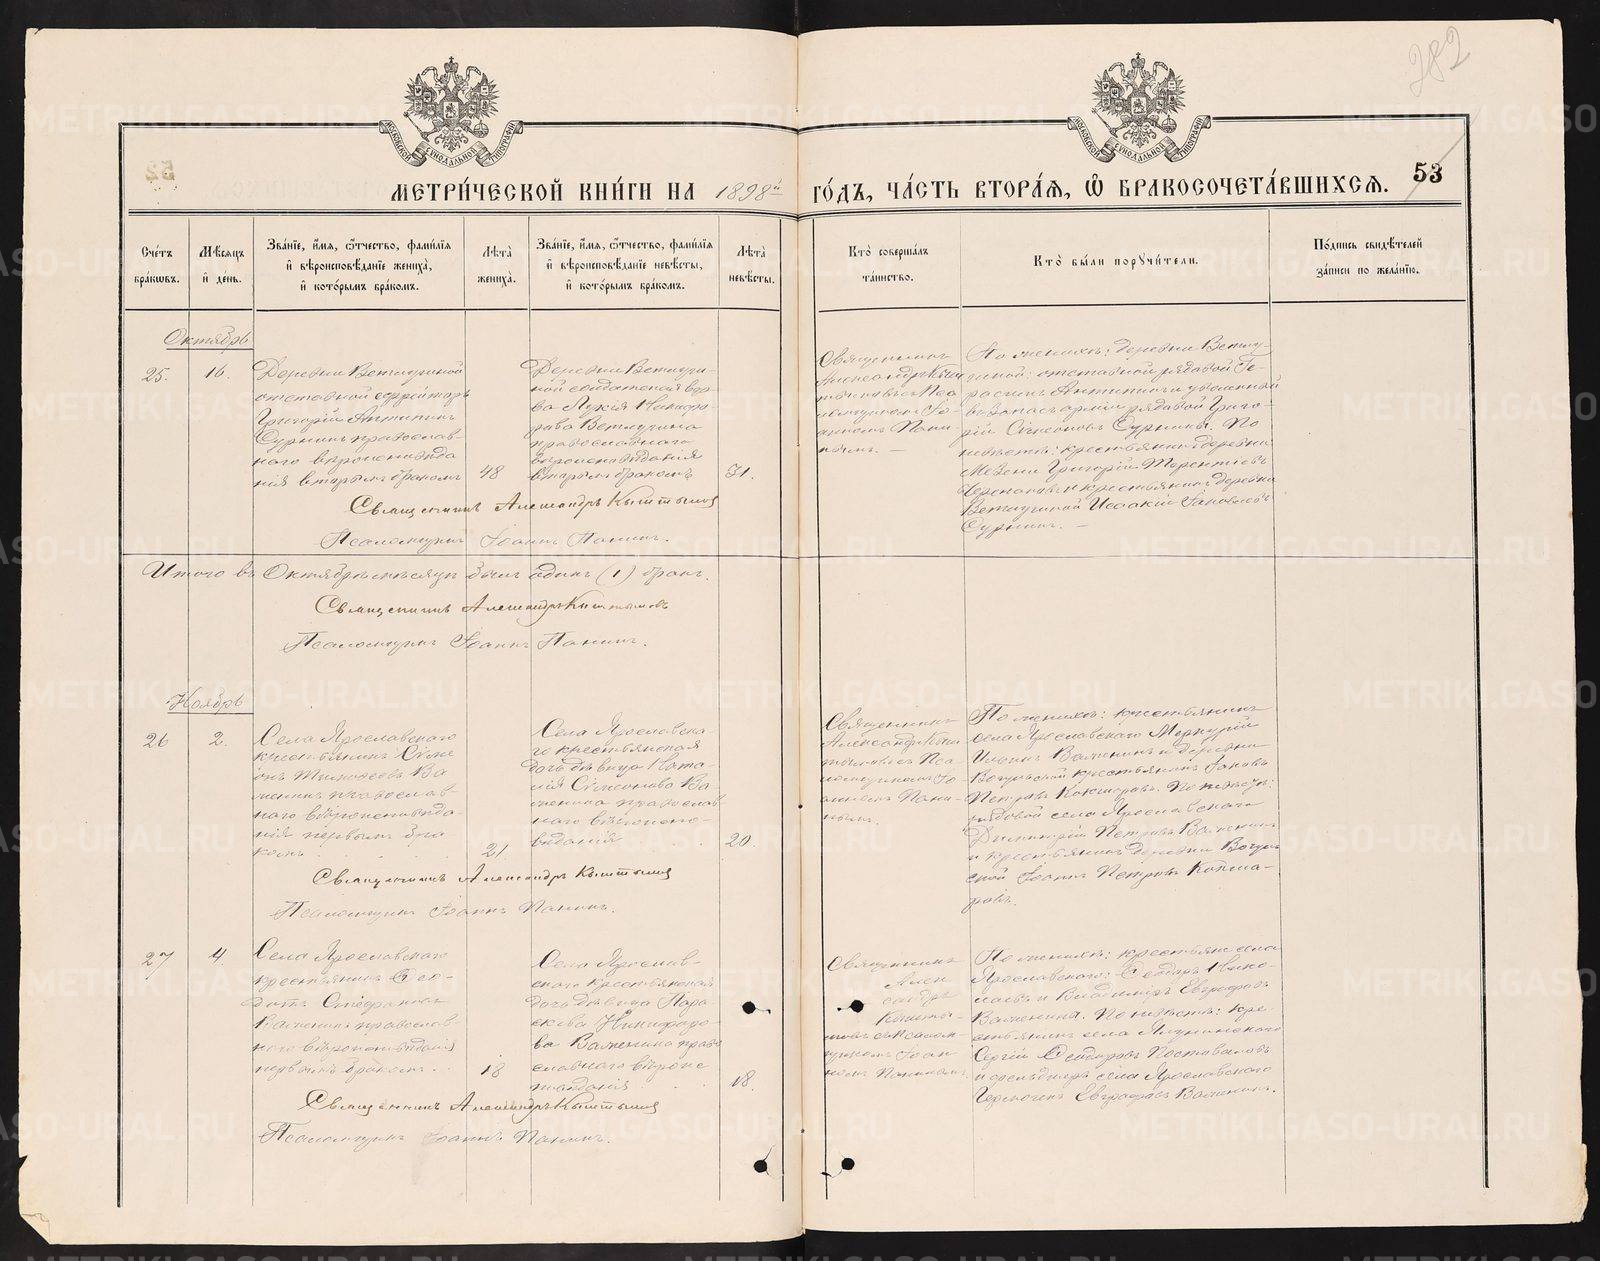 282
53
МОСКОВСКОЙ СѴНОДАЛЬНОЙ ТИПОГРАФІИ
МОСКОВСКОЙ СѴНОДАЛЬНОЙ ТИПОГРАФІИ
МЕТРИ́ЧЕСКОЙ КНИ́ГИ НА 1898й ГО́ДЪ, ЧА́СТЬ ВТОРА́Ѧ, Ѽ БРАКОСОЧЕТА́ВШИХСѦ.
Сче́тъ бра́кѡвъ.
Мѣ́сѧцъ и҆ де́нь.
Зва́нїе, и҆́мѧ, ѻ҆́тчество, фами́лїѧ и҆ вѣроисповѣ́данїе жениха̀, и҆ кото́рымъ бра́комъ.
Лѣ́та жениха̀.
Зва́нїе, и҆́мѧ, ѻ҆́тчество, фами́лїѧ и҆ вѣроисповѣ́данїе невѣ́сты, и҆ кото́рымъ бра́комъ.
Лѣ́та невѣ́сты.
Кто̀ соверша́лъ та́инство.
Кто̀ бы́ли порꙋчи́тели.
По́дпись свидѣ́телей за́писи по жела́нїю.
Октябрь
25.
16.
Деревни Ветлугиной
отставной ефрейторъ
Григорій Антипинъ
Сурнинъ православ-
наго вѣроисповѣда
нія вторымъ бракомъ
48
Деревни Ветлуги-
ной солдатская вдо-
ва Лукія Никифо
рова Ветлугина
православнаго
вѣроисповѣданія
вторымъ бракомъ
31.
Священникъ
Александръ Кышт
тымовъ съ Пса
ломщикомъ Іо-
анномъ Пани-
нымъ. —
По женихѣ: деревни Ветлу-
гиной: отставной рядовой Ге-
расимъ Антипинъ и уволенный
въ запасъ арміи рядовой Григо-
рій Сѵмеоновъ Сурнины. По
невѣстѣ: крестьянинъ деревни
Григорій Терентіевъ
и крестьянинъ деревни
Ветлугиной Исаакій Іаковлевъ
Сурнинъ. —
Священникъ Александръ Кыштымовъ
Псаломщикъ Іоаннъ Панинъ.
Итого въ Октябрѣ мѣсяцѣ былъ одинъ (1) бракъ.
Священникъ Александръ Кыштымовъ
Псаломщикъ Іоаннъ Панинъ.
Ноябрь
26
2.
Села Ярославскаго
крестьянинъ Сѵме
онъ Тимоѳеевъ Ва
женинъ православ
наго вѣроисповѣда-
нія первымъ бра
комъ
21.
Села Ярославска-
го крестьянская
дочь дѣвица Ната-
лія Сѵмеонова Ва-
женина православ
наго вѣроиспо-
вѣданія
20.
Священникъ
Александръ Кыш
тымовъ съ Пса
ломщикомъ Іо-
анномъ Пани-
нымъ.
По женихѣ: крестьянинъ
села Ярославскаго Меркурій
Ильинъ Важенинъ и деревни
крестьянинъ Іаковъ
Петровъ Кокшаровъ. По невѣстѣ:
рядовой села Ярославскаго
Димитрій Петровъ Важенинъ
и крестьянинъ деревни
Іоаннъ Петровъ Кокша-
ровъ.
Священникъ Александръ Кыштымовъ
Псаломщикъ Іоаннъ Панинъ.
27
4
Села Ярославскаго
крестьянинъ Ѳео-
дотъ Стефановъ
Важенинъ православ-
наго вѣроисповѣданія
первымъ бракомъ.
18
Села Ярослав-
скаго крестьянская
дочь дѣвица Пара
скева Никифоро-
ва Важенина право
славнаго вѣроис
повѣданія
18.
Священникъ
Алек
сандръ
Кышты-
мовъ съ Псалом-
щикомъ Іоан
номъ Панинымъ.
По женихѣ: крестьяне села
Ярославскаго: Ѳеодоръ Нико-
лаевъ и Владиміръ Евграфовъ
Важенины. По невѣстѣ: кре-
стьянинъ села
Сергій Ѳеодоровъ
и фельдшеръ села Ярославскаго
Гермогенъ Евграфовъ Важенинъ.
Священникъ Александръ Кыштымовъ
Псаломщикъ Іоаннъ Панинъ.
METRIKI.GASO-URAL.RU